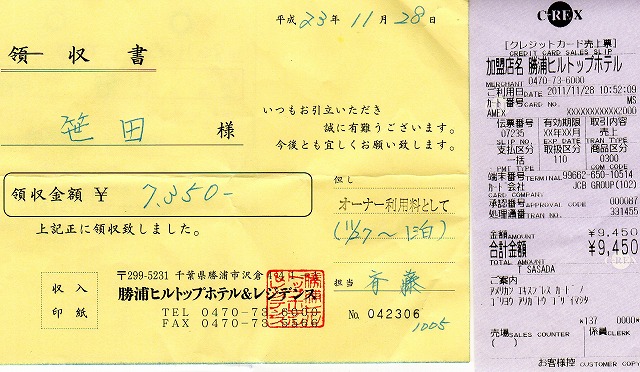 平成 23 年 11 月 28 日
領収書
笹田 様
いつもお引立いただき
誠に有難うございます。
今後とも宜しくお願い致します。
領収金額 ¥ 7,350-
上記正に領収致しました。
但し
オーナー利用料として
(11/27〜1泊)
収入
印紙
〒299-5231 千葉県勝浦市沢倉
勝浦ヒルトップホテル&レジデンス
TEL 0470-73-6000
FAX 0470-73-6566
担当 斉藤
No. 042306
1005
C-REX
[クレジットカード売上票]
CREDIT CARD SALES SLIP
加盟店名 勝浦ヒルトップホテル
MERCHANT 0470-73-6000
ご利用日 2011/11/28 10:52:09
カード番号 CARD NO. MS
AMEX XXXXXXXXXXX2000
伝票番号 有効期限 取引内容
07235 XX年XX月 売上
SLIP NO. EXP DATE TRAN TYPE
支払区分 取扱区分 商品区分
一括 110 0300
PMT TYPE COM CODE
端末番号 TERMINAL 99662-650-10514
カード会社 JCB GROUP(102)
CARD COMPANY
承認番号 APPROVAL CODE 000087
処理通番 TRAN NO. 331455
金額 AMOUNT ¥9,450
合計金額 ¥9,450
TOTAL AMOUNT
T SASADA
ご案内
アメリカン エキスプレス カード ノ
ゴリヨウ アリカトウ ゴザイマシタ
*137 0000*
売場 SALES COUNTER 係員 CLERK
( )
お客様控 CUSTOMER COPY